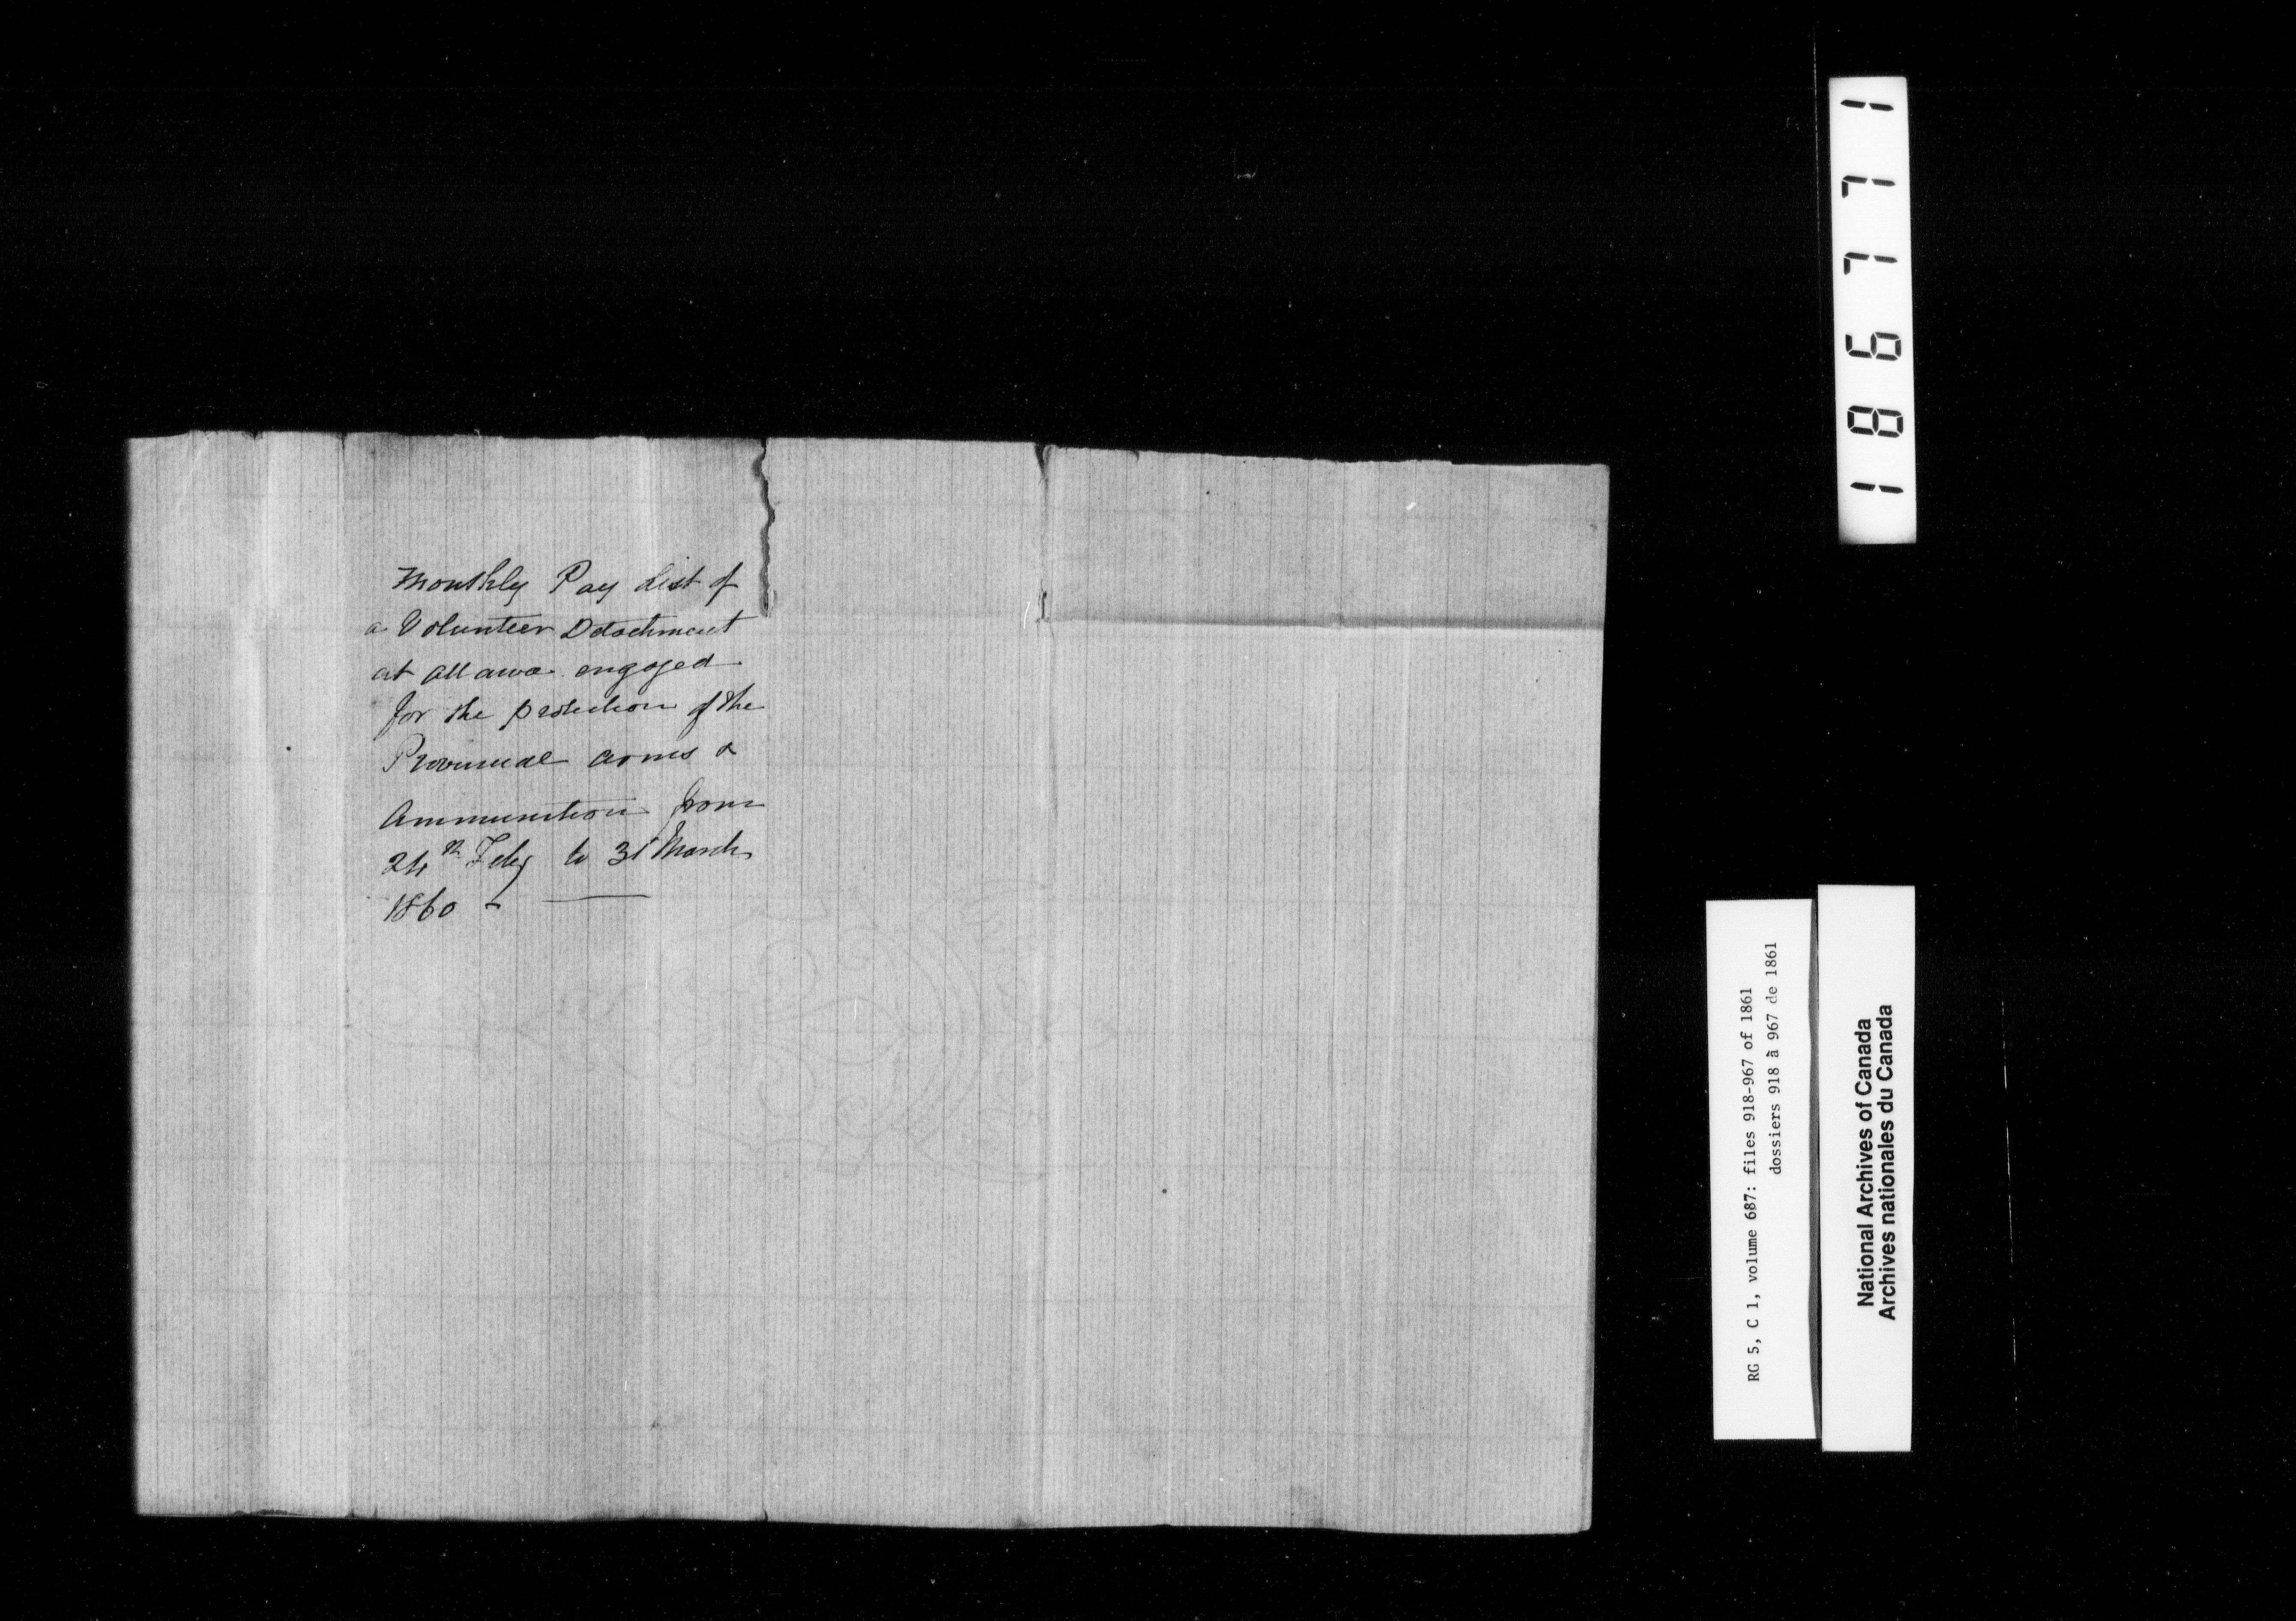 Monthly Pay List of
a Volunteer Detachment
at Ottawa engaged
for the protection of the
Provincial arms &
Ammunition from
24th Feby to 31 March
1860
186771
RG 5, C 1, volume 687: files 918-967 of 1861
dossiers 918 à 967 de 1861
National Archives of Canada
Archives nationales du Canada